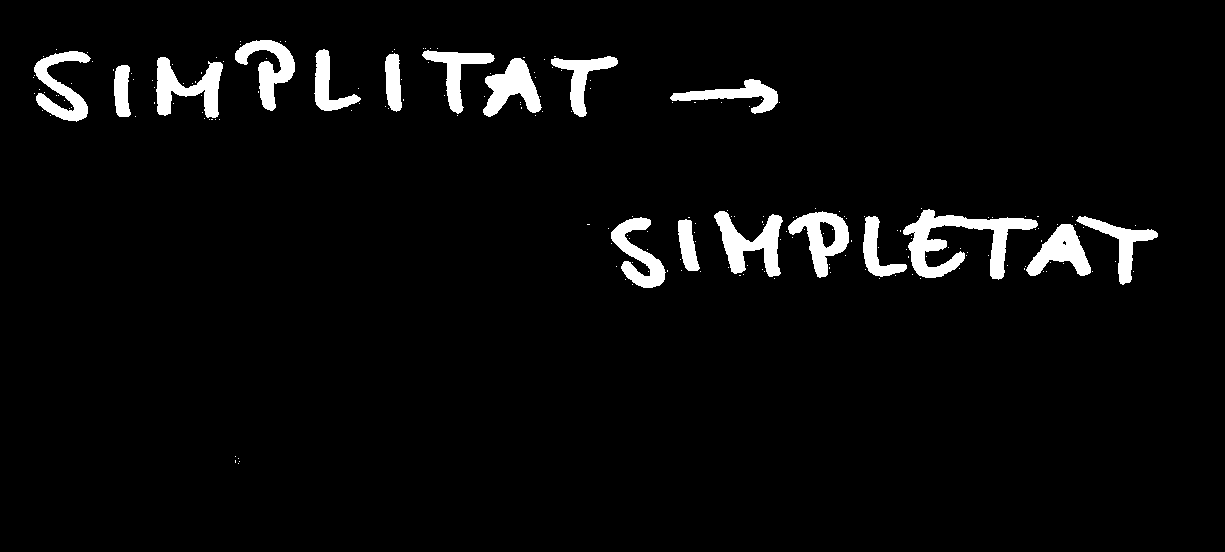 SIMPLITAT →
SIMPLETAT